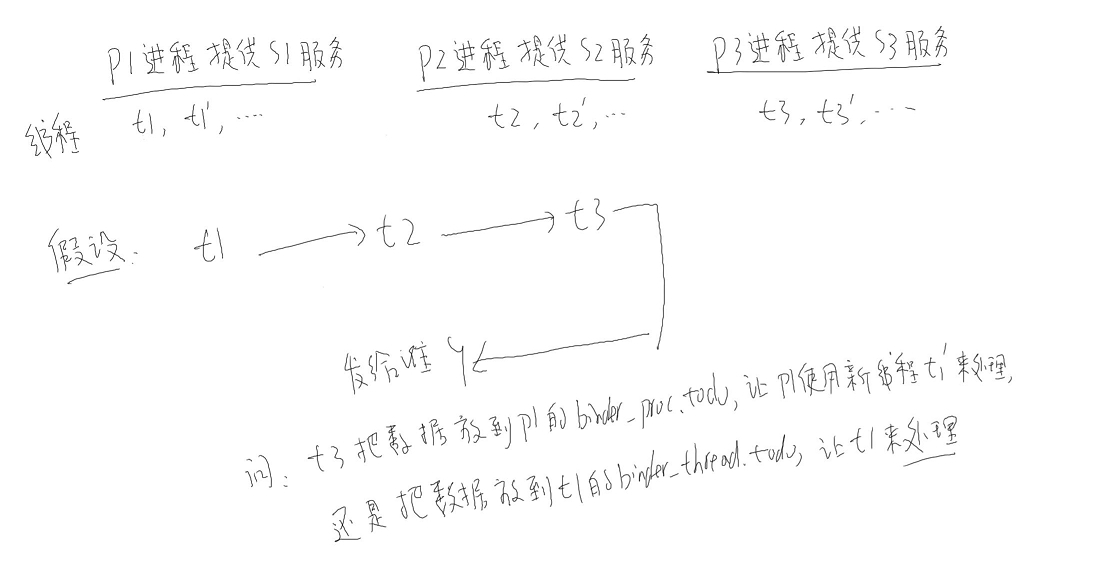 P1进程 提供S1服务 P2进程 提供S2服务 P3进程 提供S3服务
线程 t1, t1', ... t2, t2', ... t3, t3', ...
假设: t1 t2 t3
发给谁
问: t3把数据放到P1的binder_proc.todo, 让P1使用新线程t1'来处理,
还是把数据放到t1的binder_thread.todo, 让t1来处理